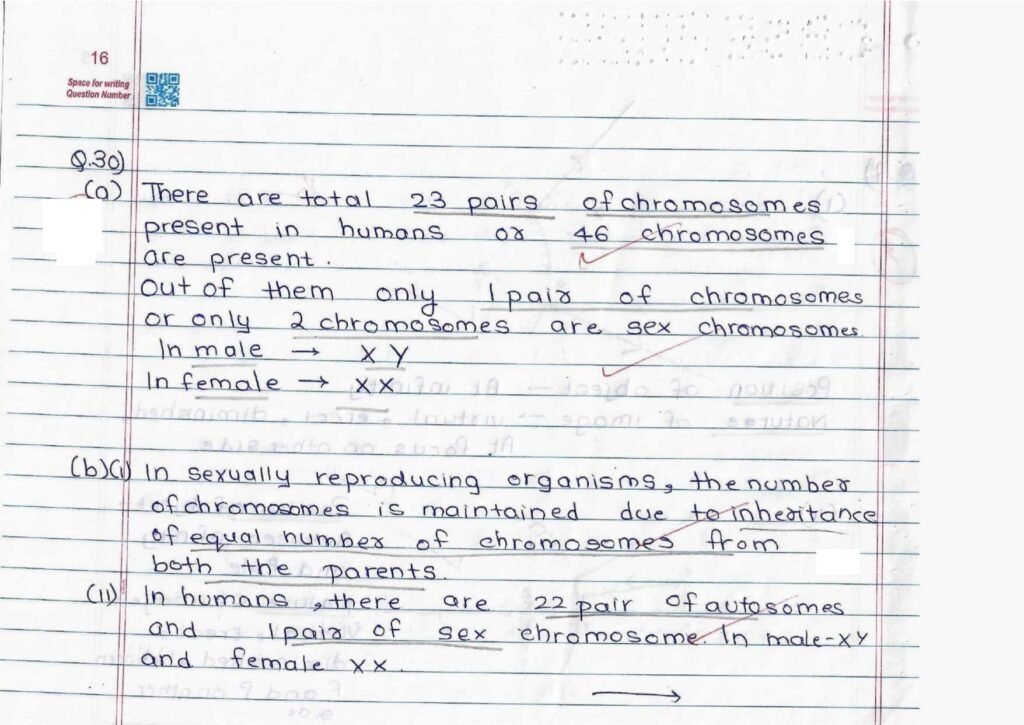 16
Space for writing
Question Number
Q.30)
(a) There are total 23 pairs of chromosomes
present in humans or 46 chromosomes
are present.
Out of them only 1 pair of chromosomes
or only 2 chromosomes are sex chromosomes.
In male → XY
In female → XX
(b)(i) In sexually reproducing organisms, the number
of chromosomes is maintained due to inheritance
of equal number of chromosomes from
both the parents.
(ii) In humans, there are 22 pair of autosomes
and 1 pair of sex chromosome. In male-XY
and female XX.
→